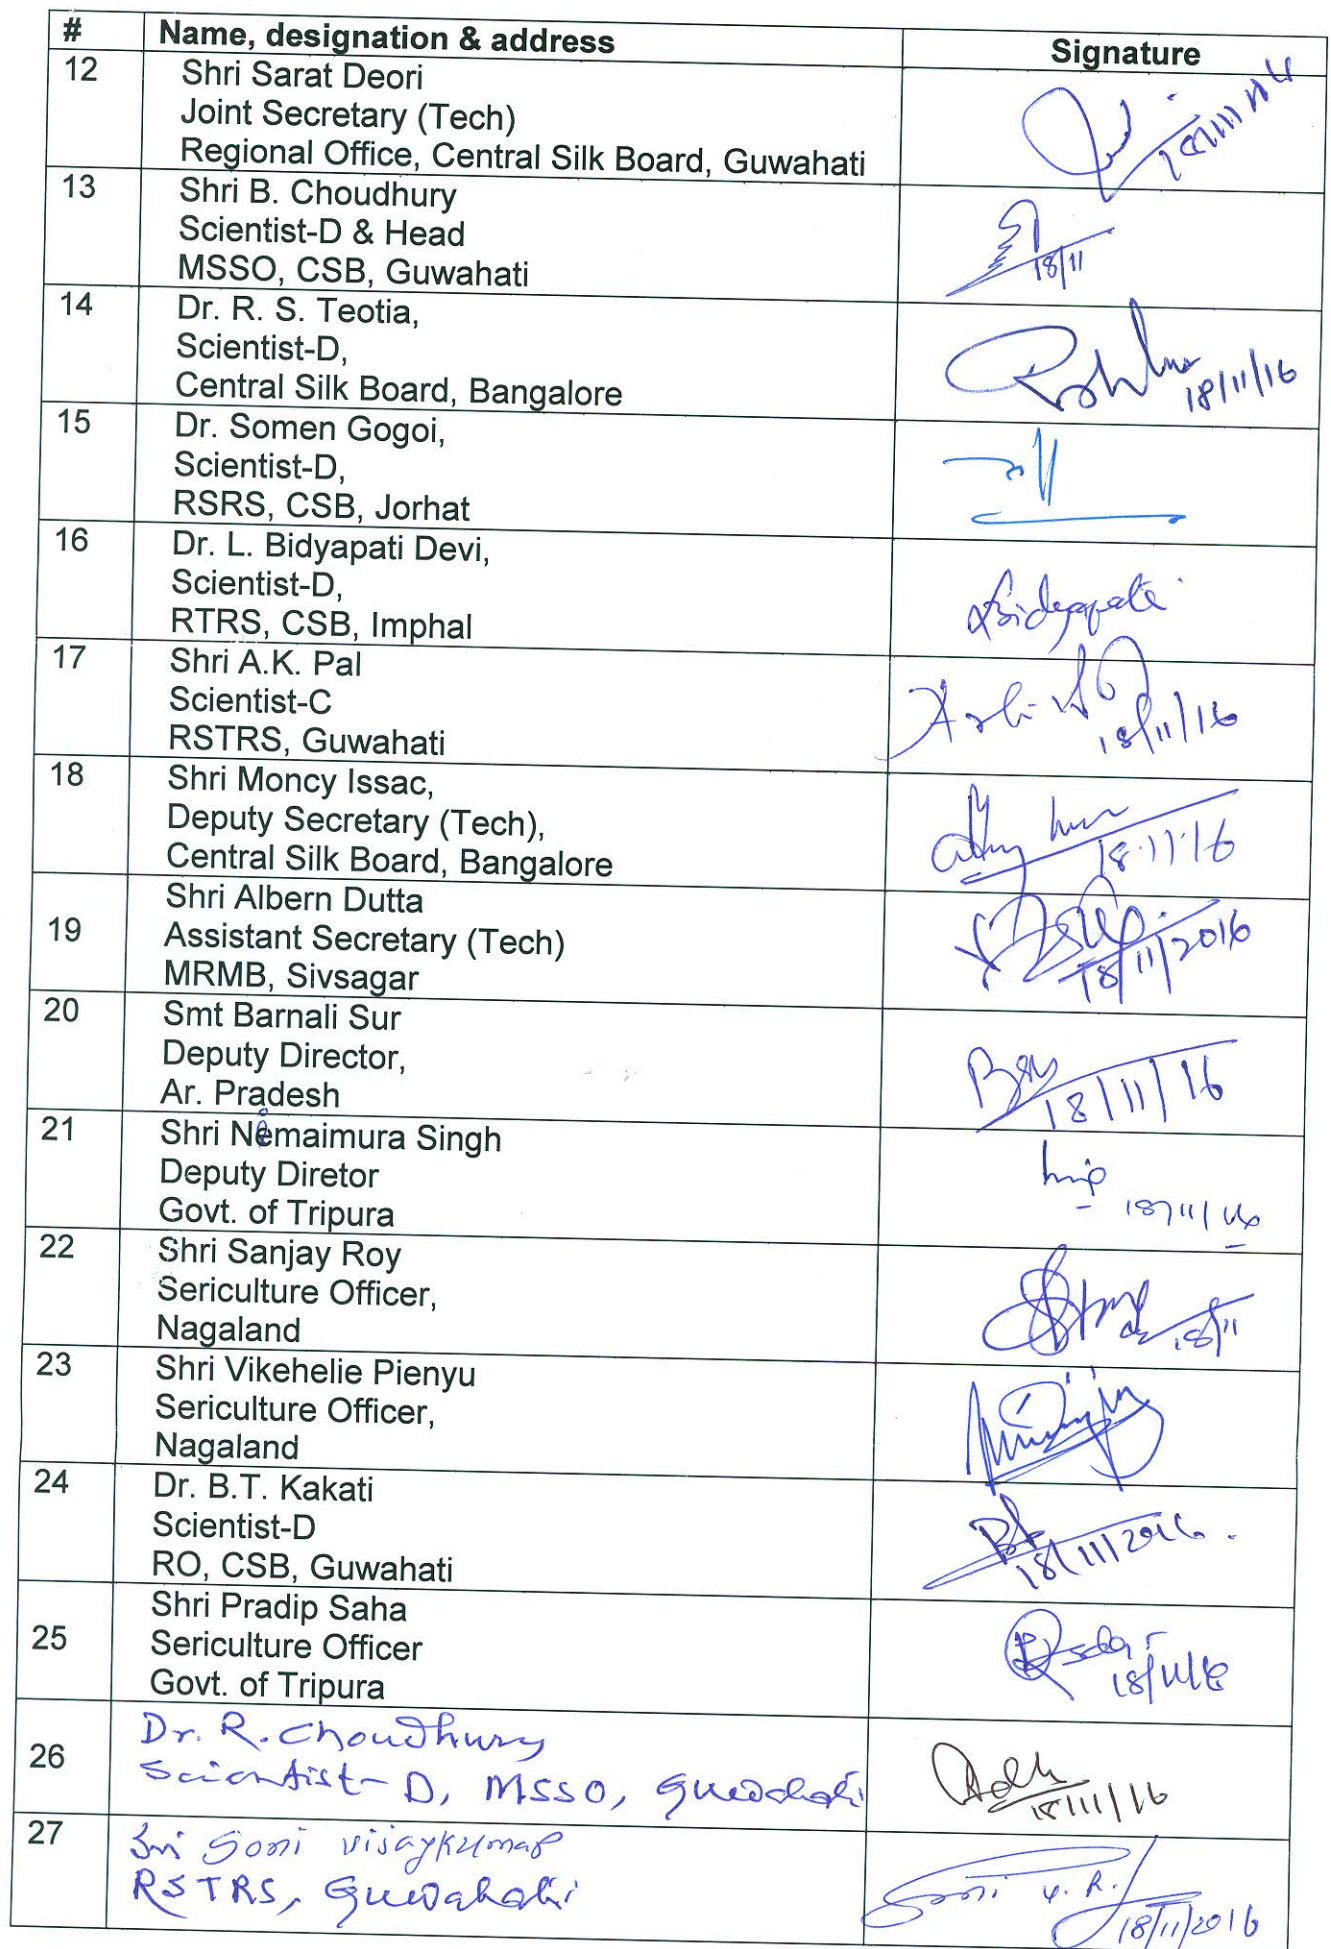 # Name, designation & address Signature
12 Shri Sarat Deori
Joint Secretary (Tech)
Regional Office, Central Silk Board, Guwahati
13 Shri B. Choudhury
Scientist-D & Head
MSSO, CSB, Guwahati
18/11
14 Dr. R. S. Teotia,
Scientist-D,
Central Silk Board, Bangalore
18/11/16
15 Dr. Somen Gogoi,
Scientist-D,
RSRS, CSB, Jorhat
16 Dr. L. Bidyapati Devi,
Scientist-D,
RTRS, CSB, Imphal
Bidyapati
17 Shri A.K. Pal
Scientist-C
RSTRS, Guwahati
18/11/16
18 Shri Moncy Issac,
Deputy Secretary (Tech),
Central Silk Board, Bangalore
18.11.16
Shri Albern Dutta
19 Assistant Secretary (Tech)
MRMB, Sivsagar
18/11/2016
20 Smt Barnali Sur
Deputy Director,
Ar. Pradesh
18/11/16
21 Shri Nemaimura Singh
Deputy Diretor
Govt. of Tripura
18/11/16
22 Shri Sanjay Roy
Sericulture Officer,
Nagaland
18/11
23 Shri Vikehelie Pienyu
Sericulture Officer,
Nagaland
24 Dr. B.T. Kakati
Scientist-D
RO, CSB, Guwahati
18/11/2016.
Shri Pradip Saha
25 Sericulture Officer
Govt. of Tripura
18/11/16
Dr. R. Choudhury
26 Scientist-D, MSSO, Guwahati
18/11/16
27 Sri Soni vijaykumar
RSTRS, Guwahati
Soni V. R.
18/11/2016